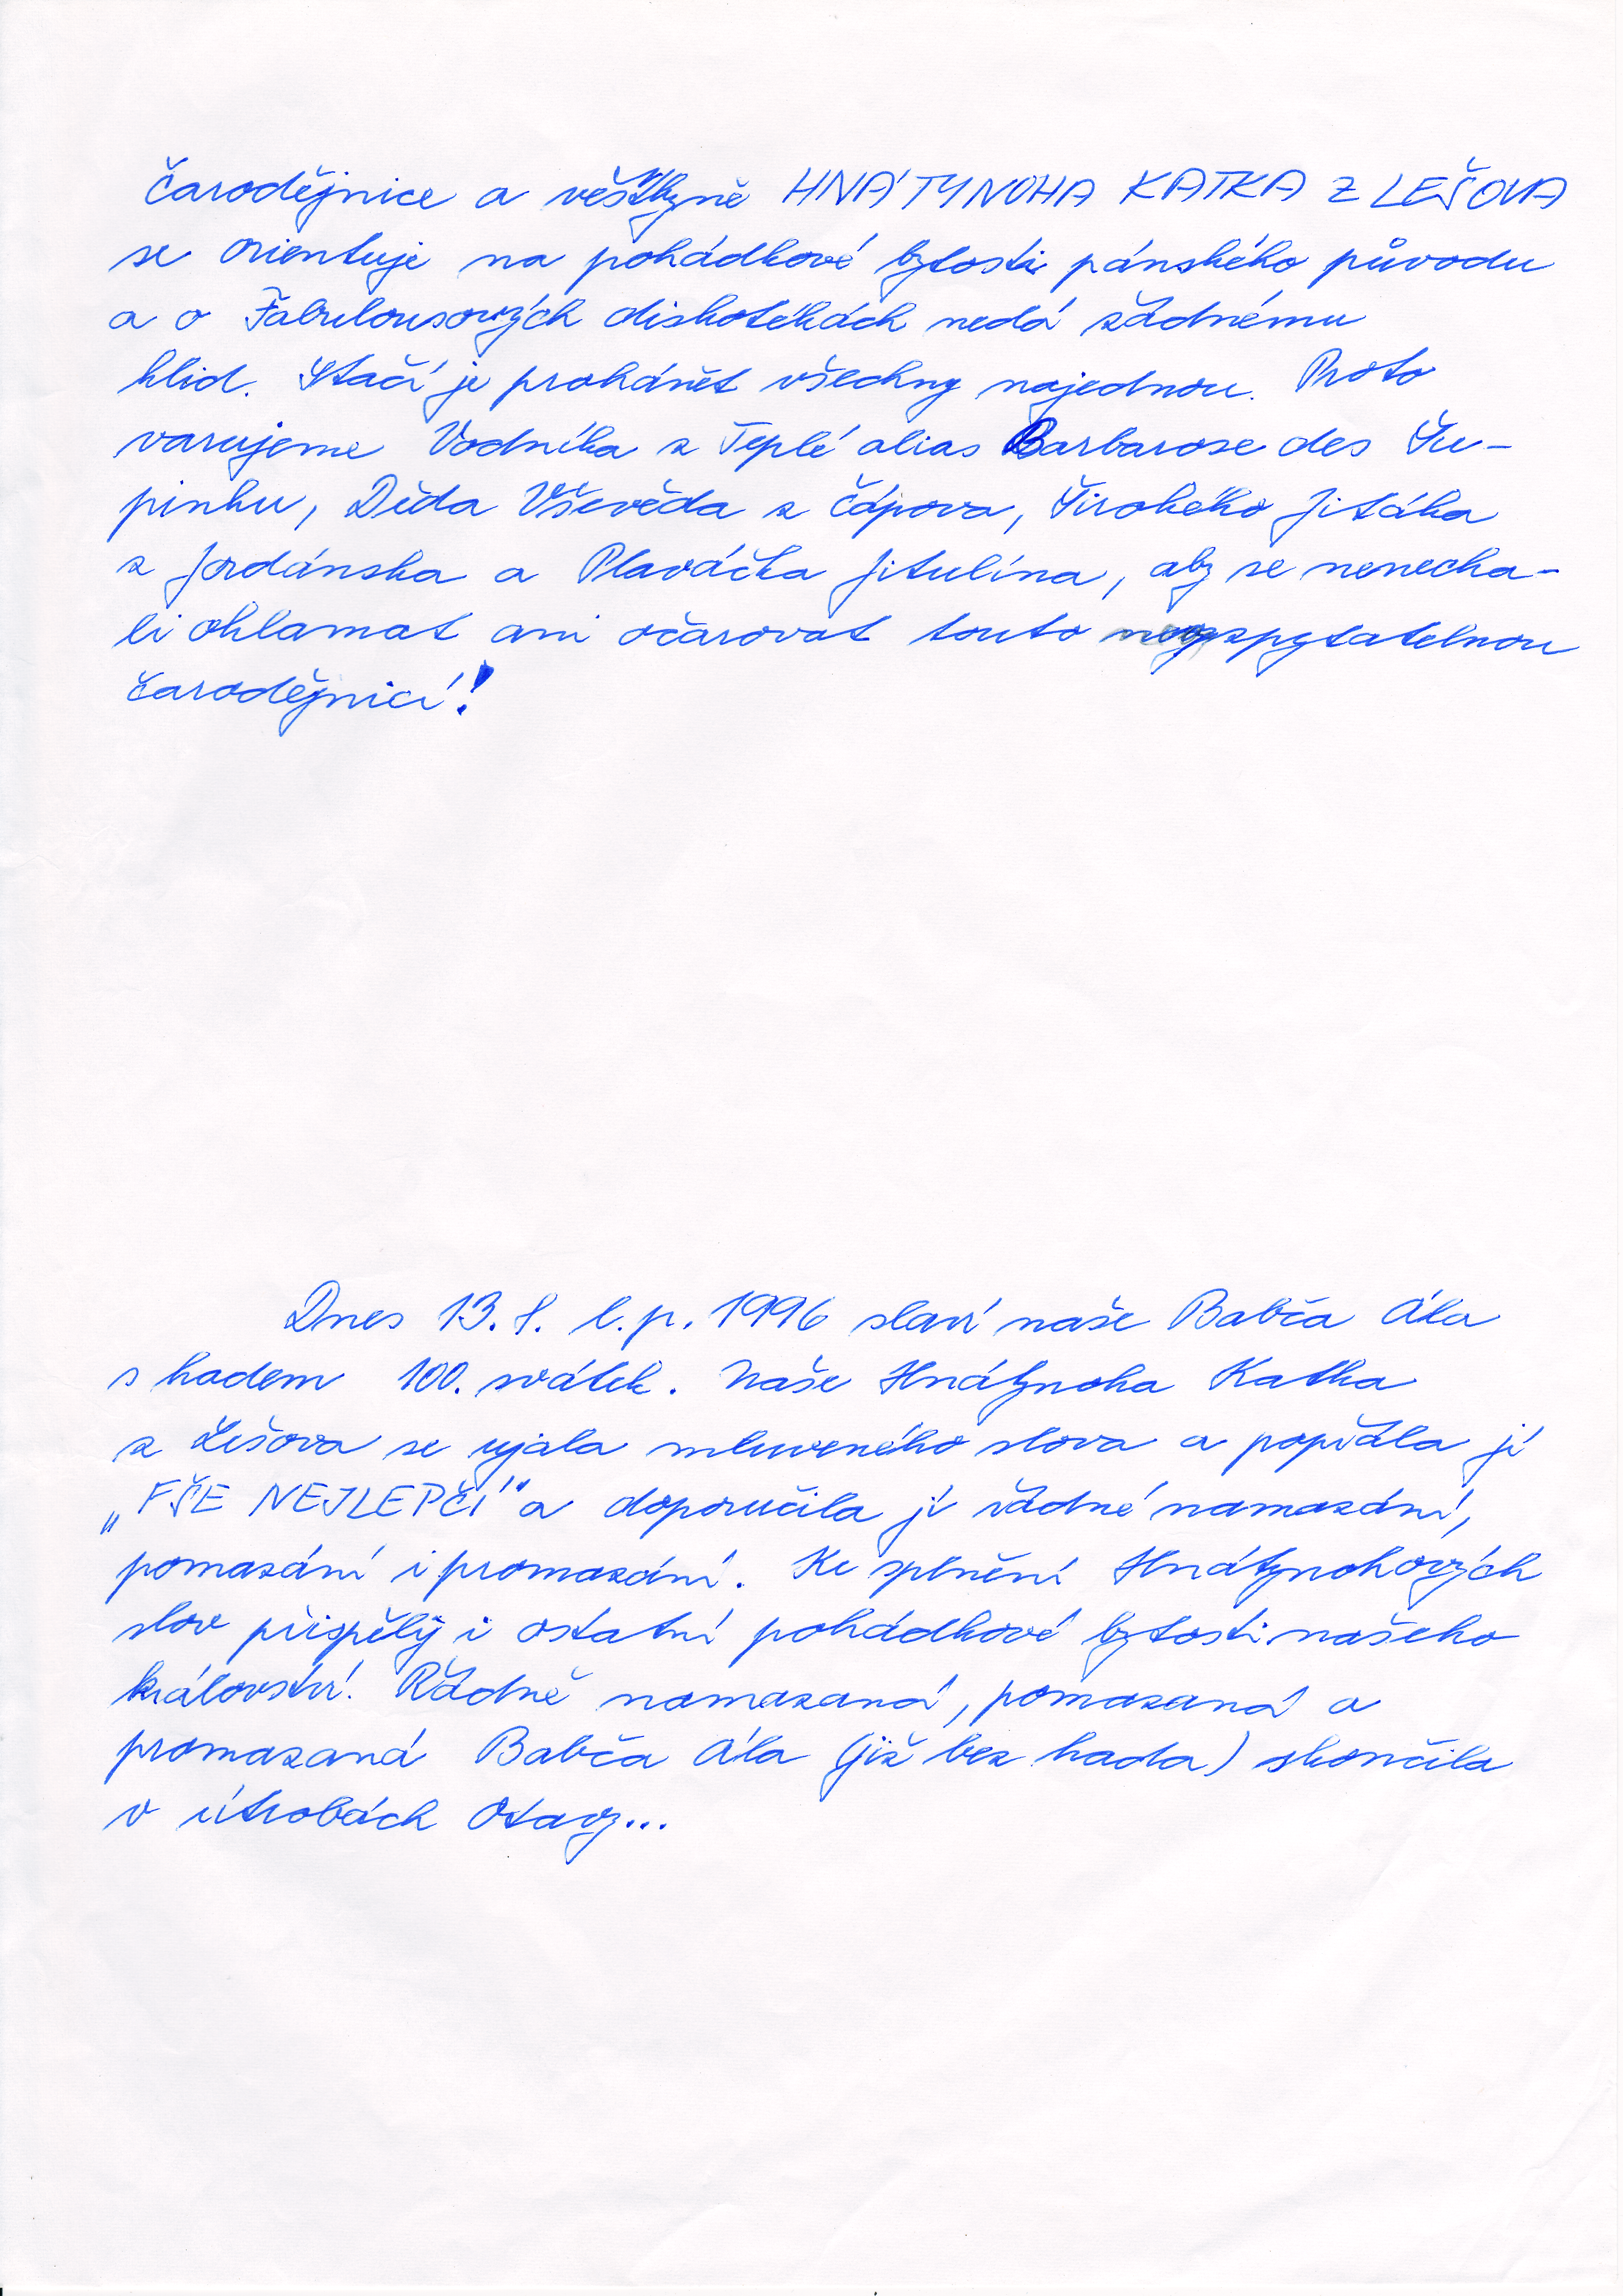 Čarodějnice a věštkyně HNÁTYNOHA KATKA Z LEŠOVA
se orientuje na pohádkové bytosti pánského původu
a o Fabulousových diskotékách nedá žádnému
klid. Stačí je prohánět všechny najednou. Proto
varujeme Vodníka z Teplé alias Barbarose des Šu-
pinku, Děda Vševěda z Čápova, Širokého Jitáka
z Jordánska a Plaváčka Jitulína, aby se nenecha-
li oklamat ani očarovat touto nevyzpytatelnou
čarodějnicí!
Dnes 13. 8. l. p. 1996 slaví naše Babča Ála
s hadem 100. svátek. Naše Hnátynoha Katka
z Lešova se ujala mluveného slova a popřála jí
„FŠE NEJLEPČÍ" a doporučila jí řádné namazání,
pomazání i promazání. Ke splnění Hnátynohových
slov přispěly i ostatní pohádkové bytosti našeho
království. Řádně namazaná, pomazaná a
promazaná Babča Ála (již bez hada) skončila
v útrobách Otavy...